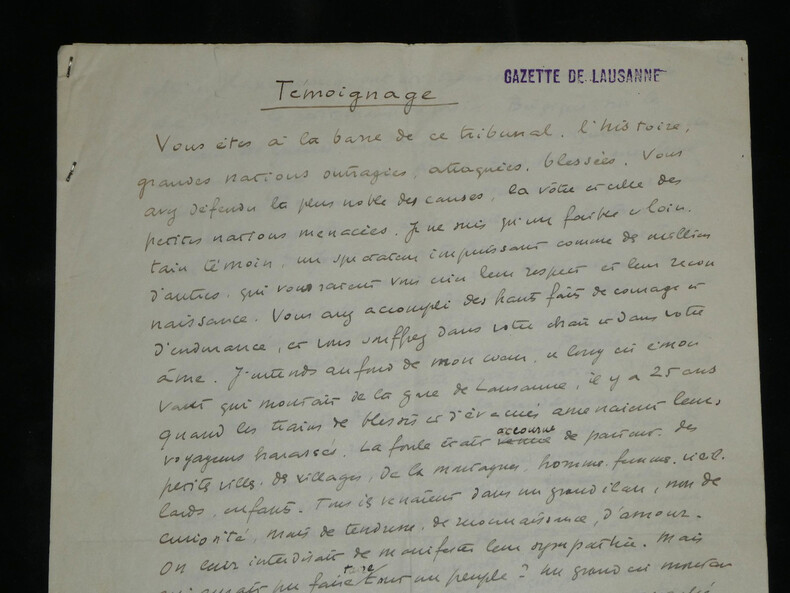 GAZETTE DE LAUSANNE
Témoignage
Vous êtes à la barre de ce tribunal, l'histoire,
grandes nations outragées, attaquées, blessées. Vous
avez défendu la plus noble des causes, la vôtre et celle des
petites nations menacées. Je ne suis qu'un faible et loin
tain témoin, un spectateur impuissant comme des millions
d'autres, qui voudraient vous crier leur respect et leur recon
naissance. Vous avez accompli des hauts faits de courage et
d'endurance, et vous souffrez dans votre chair et dans votre
âme. J'entends au fond de mon cœur, ce long cri émou
vant qui montait de la gare de Lausanne, il y a 25 ans
quand les trains de blessés et d'évacués amenaient leurs
voyageurs harassés. La foule était venue accourue de partout, des
petites villes, des villages, de la montagne, hommes, femmes, vieil
lards, enfants. Tous ils venaient dans un grand élan, non de
curiosité, mais de tendresse, de reconnaissance, d'amour.
On leur interdisait de manifester leur sympathie. Mais
qui aurait pu faire taire tout un peuple ? Un grand cri montait